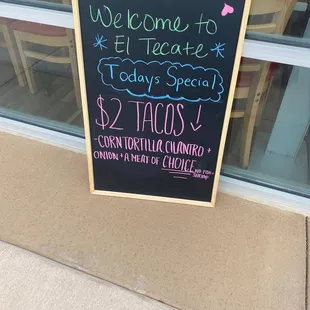 Welcome to
El Tecate
Todays Special
$2 TACOS ↓
-CORN TORTILLA, CILANTRO +
ONION + A MEAT OF CHOICE
NO FISH-
SHRIMP